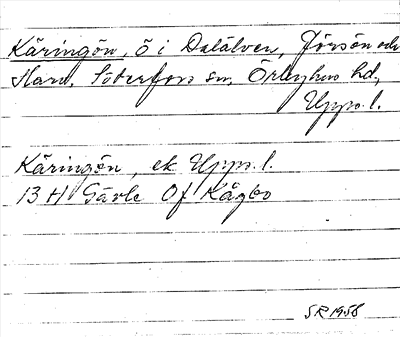 Käringön, ö i Dalälven, Jörsön och
Ham. Söderfors sn, Örbyhus hd,
Upps. l.
Käringön, ek Upps. l.
13 H Gävle 0f Kågbo
SR 1958